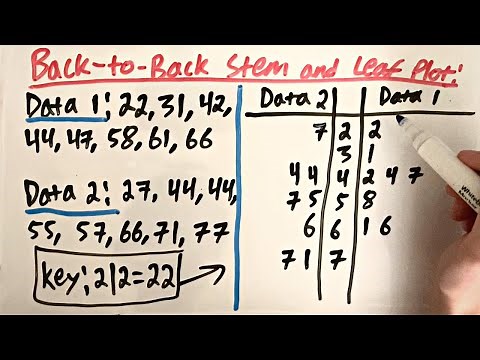 Back-to-Back Stem and Leaf Plot:
Data 1: 22, 31, 42,
44, 47, 58, 61, 66
Data 2: 27, 44, 44,
55, 57, 66, 71, 77
Key: 2|2=22
Data 2 Data 1
7 2 2
3 1
4 4 4 2 4 7
7 5 5 8
6 6 1 6
7 1 7